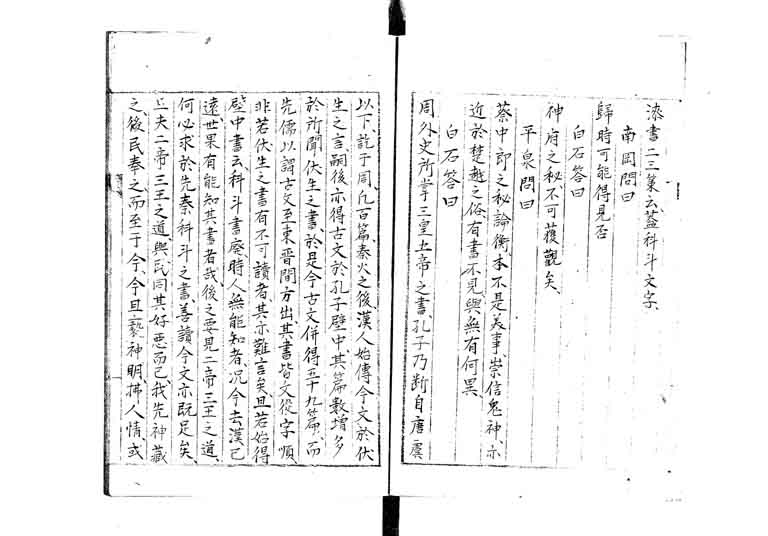 漆書二三策云蓋科斗文字、
南岡問曰
歸時可能得見否
白石答曰
神府之秘、不可獲觀矣、
平泉問曰
蔡中郎之秘論衡本不是美事、崇信鬼神、亦
近於楚越之俗、有書不見、與無有何異
白石答曰
周外史所掌三皇五帝之書、孔子乃断自唐虞
以下、訖于周、凡百篇、秦火之後、漢人始傳今文於伏
生之言、嗣後亦得古文於孔子壁中、其篇數增多
於所聞伏生之書、於是今古文併得五十九篇、而
先儒以謂古文至東晋間方出、其書皆文從字順、
非若伏生之書有不可讀者、其亦難言矣、且若始得
壁中書云、科斗書廢、時人無能知者、况今去漢已
遠、世果有能知其書者哉、後之要見二帝三王之道、
何必求於先秦科斗之書、善讀今文亦既足矣、
且夫二帝三王之道、與民同其好惡而已、我先神藏
之、後民奉之、而至于今、今且褻神明、拂人情、或